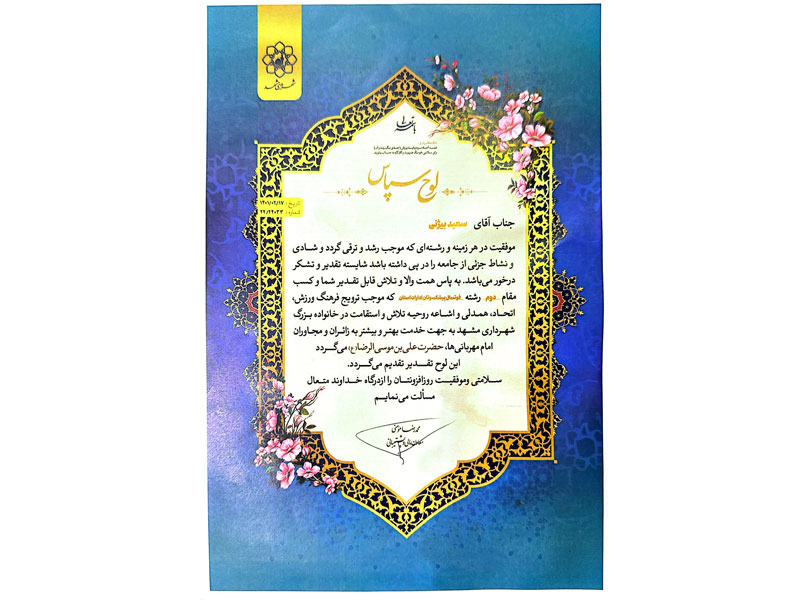 شهرداری مشهد
لوح سپاس
تاریخ: ۱۴۰۱/۰۲/۱۷
شماره: ۲۲/۲۲۰۳۳
جناب آقای سعید بیژنی
موفقیت در هر زمینه و رشته‌ای که موجب رشد و ترقی گردد و شادی
و نشاط جزئی از جامعه را در پی داشته باشد شایسته تقدیر و تشکر
درخور می‌باشد. به پاس همت والا و تلاش قابل تقدیر شما و کسب
مقام دوم رشته فوتسال پیشکسوتان ادارات استان که موجب ترویج فرهنگ ورزش،
اتحاد، همدلی و اشاعه روحیه تلاش و استقامت در خانواده بزرگ
شهرداری مشهد به جهت خدمت بهتر و بیشتر به زائران و مجاوران
امام مهربانی‌ها، حضرت علی بن موسی الرضا(ع) می‌گردد
این لوح تقدیر تقدیم می‌گردد.
سلامتی وموفقیت روزافزونتان را ازدرگاه خداوند متعال
مسألت می‌نمایم
محمدرضا موسی